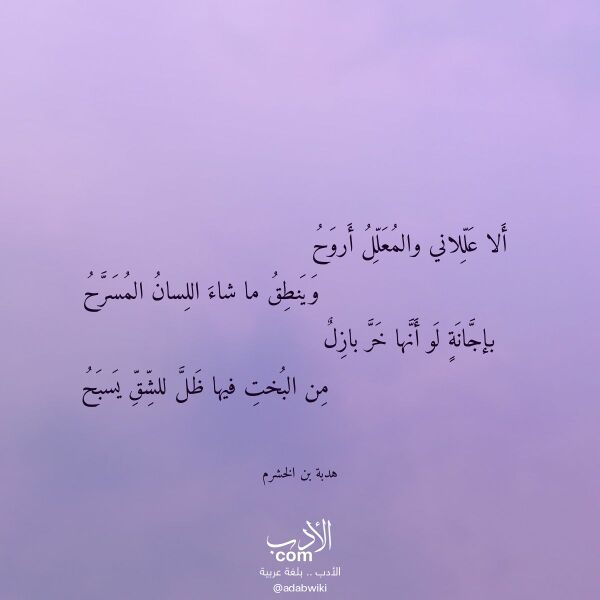 أَلا عَلِّلاني والمُعَلِّلُ أَروَحُ
وَيَنطِقُ ما شاءَ اللِسانُ المُسَرَّحُ
بإجَّانَةٍ لَو أَنَّها خَرَّ بازِلٌ
مِن البُختِ فيها ظَلَّ للشِّقِّ يَسبَحُ
هدبة بن الخشرم
الأدب
.com
الأدب .. بلغة عربية
@adabwiki